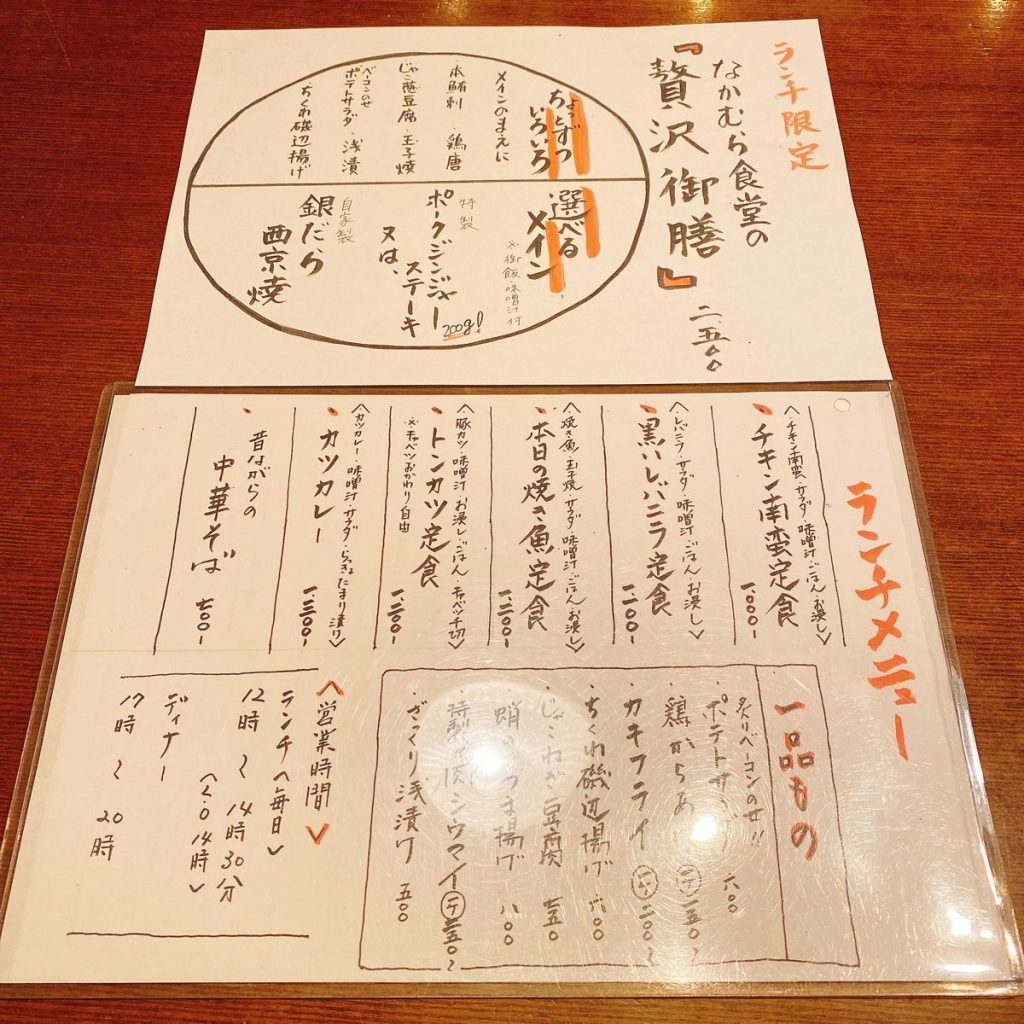 ランチ限定
なかむら食堂の
『贅沢御膳』
二、五〇〇
ちょっとずつ
いろいろ
メインのまえに
本鮪刺・鶏唐
じゃこ葱豆腐・玉子焼
ベーコンのせ
ポテトサラダ・浅漬
・ちくわ磯辺揚げ
選べる
メイン
※御飯・味噌汁付
特製
ポークジンジャー
ステーキ
200g!
又は、
自家製
銀だら
西京焼
ランチメニュー
・チキン南蛮定食 一、〇〇〇-
<チキン南蛮・サラダ・味噌汁・ごはん・お浸し>
・黒いレバニラ定食 一、二〇〇-
<レバニラ・サラダ・味噌汁・ごはん・お浸し>
・本日の焼き魚定食 一、二〇〇-
<焼き魚・玉子焼・サラダ・味噌汁・ごはん・お浸し>
・トンカツ定食 一、二〇〇-
<豚カツ・味噌汁・お浸し・ごはん・キャベツ千切>
※キャベツおかわり自由
・カツカレー 一、二〇〇-
<カツカレー・味噌汁・サラダ・らっきょたまり漬け>
・昔ながらの
中華そば 七〇〇-
一品もの
炙りベーコンのせ!!
・ポテトサラダ 六〇〇
・鶏からあげ
・カキフライ
・ちくわ磯辺揚げ 六〇〇
・じゃこねぎ豆腐 七五〇
・蛸のさつま揚げ 八〇〇
・特製 シウマイ
・ざっくり浅漬け 五〇〇
<営業時間>
ランチ<毎日>
12時〜14時30分
<L.O 14時>
ディナー
17時〜20時